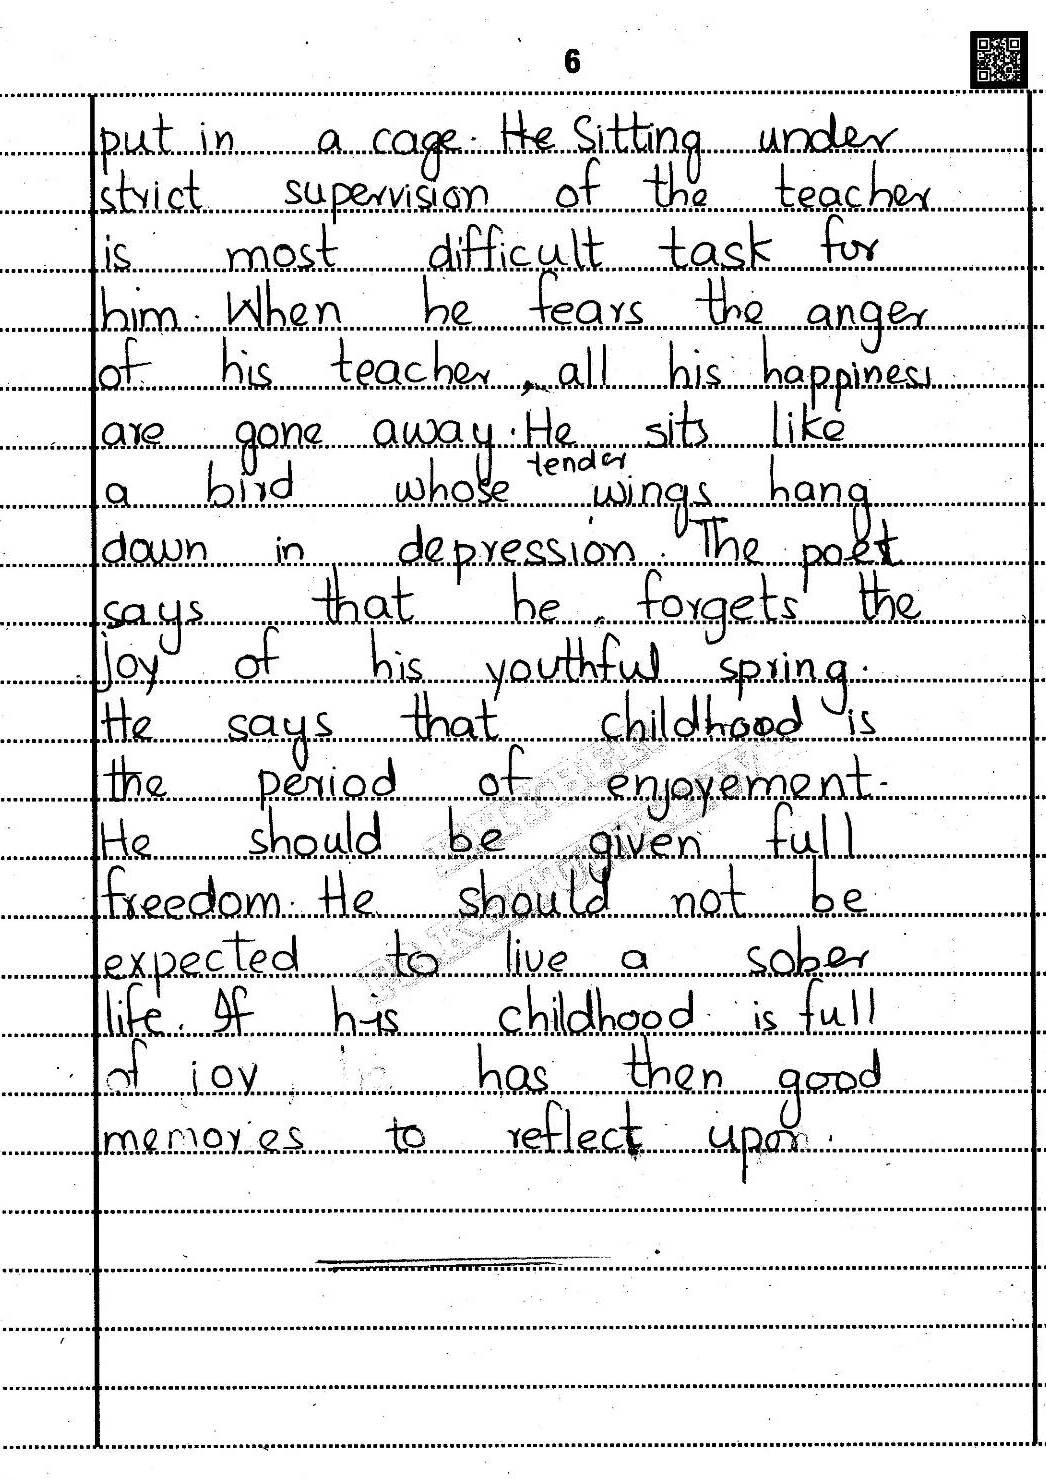 6
put in a cage. He Sitting under
strict supervision of the teacher
is most difficult task for
him. When he fears the anger
of his teacher, all his happiness
are gone away. He sits like
a bird whose tender wings hang
down in depression. The poet
says that he forgets the
joy of his youthful spring.
He says that childhood is
the period of enjoyement.
He should be given full
freedom. He should not be
expected to live a sober
life. If his childhood is full
of joy has then good
memories to reflect upon.